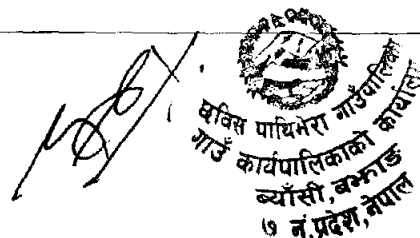 छविस पाथिभेरा गाउँपालिका
गाउँ कार्यपालिकाको कार्यालय
ब्याँसी, बझाङ
७ नं. प्रदेश, नेपाल